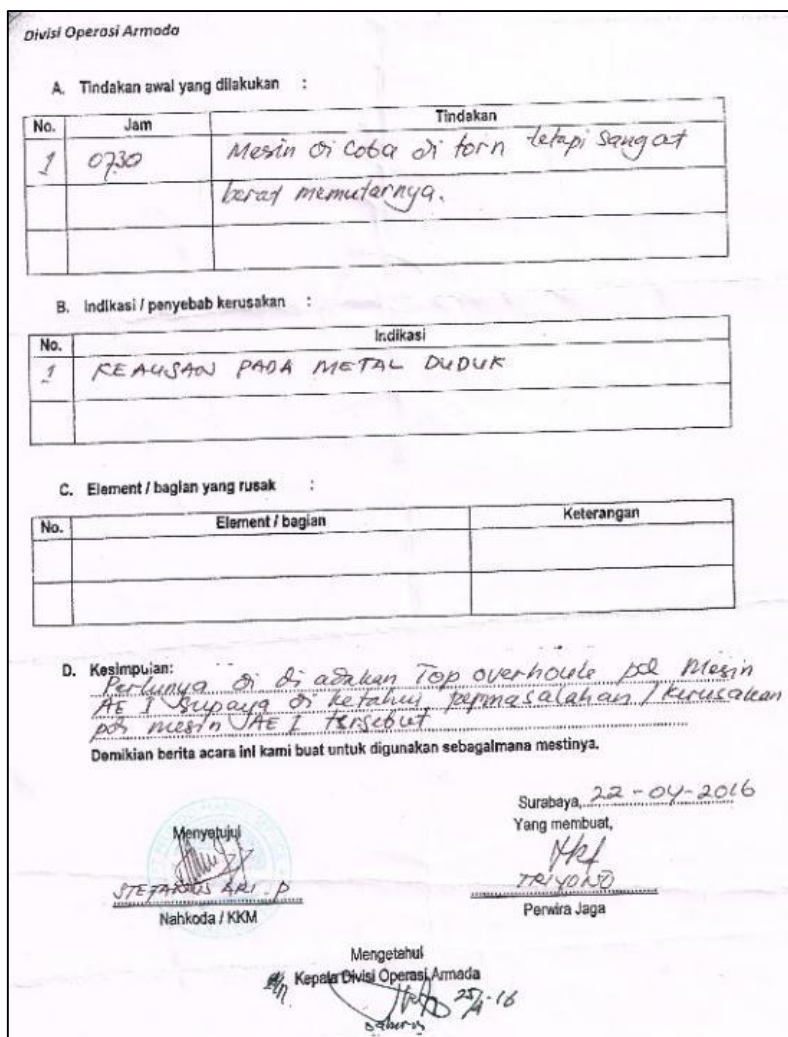 Divisi Operasi Armada
A. Tindakan awal yang dilakukan :
No. Jam Tindakan
1 0730 Mesin di coba di torn tetapi sangat
berat memutarnya.
B. Indikasi / penyebab kerusakan :
No. Indikasi
1 KEAUSAN PADA METAL DUDUK
C. Element / bagian yang rusak :
No. Element / bagian Keterangan
D. Kesimpulan:
Perlunya di di adakan Top overhoule pd Mesin
AE 1 supaya di ketahui permasalahan / kerusakan
pd mesin AE 1 tersebut
Demikian berita acara ini kami buat untuk digunakan sebagaimana mestinya.
Surabaya, 22-04-2016
Menyetujui
Yang membuat,
STEFANUS ARI . P
TRIYONO
Nahkoda / KKM
Perwira Jaga
Mengetahui
Kepala Divisi Operasi Armada